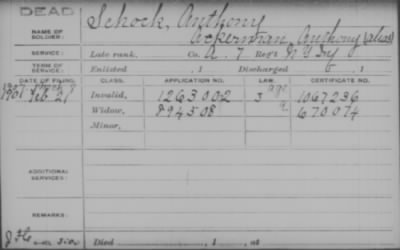 DEAD
NAME OF SOLDIER: Schock, Anthony
Ackerman, Anthony (alias)
SERVICE: Late rank, Co. A. 7 Reg't N.Y. Inf
TERM OF SERVICE: Enlisted , 1 Discharged , 1
DATE OF FILING. CLASS. APPLICATION NO. LAW. CERTIFICATE NO.
Invalid, 1263002 age 1067236
1907 Feb. 27 Widow, 894508 670074
Minor,
ADDITIONAL SERVICES:
REMARKS:
Died , 1 , at